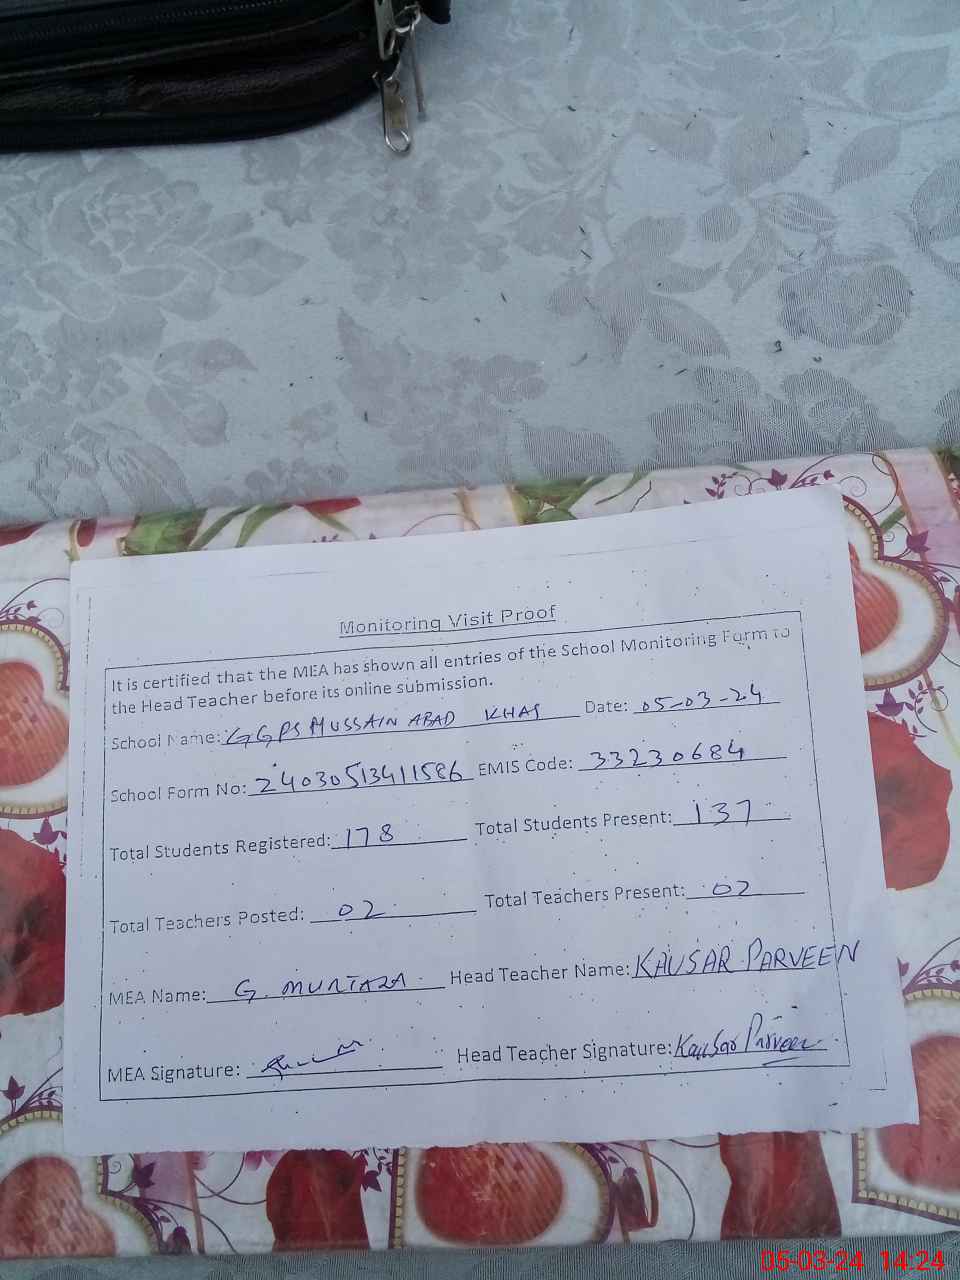 Monitoring Visit Proof
It is certified that the MEA has shown all entries of the School Monitoring Form to
the Head Teacher before its online submission.
School Name: GGPS HUSSAIN ABAD KHAS Date: 05-03-24
School Form No: 24030513411586 EMIS Code: 33230684
Total Students Registered: 178 Total Students Present: 137
Total Teachers Posted: 02 Total Teachers Present: 02
MEA Name: G. MURTAZA Head Teacher Name: KAUSAR PARVEEN
MEA Signature: Head Teacher Signature: Kausar Parveen
05-03-24 14:24